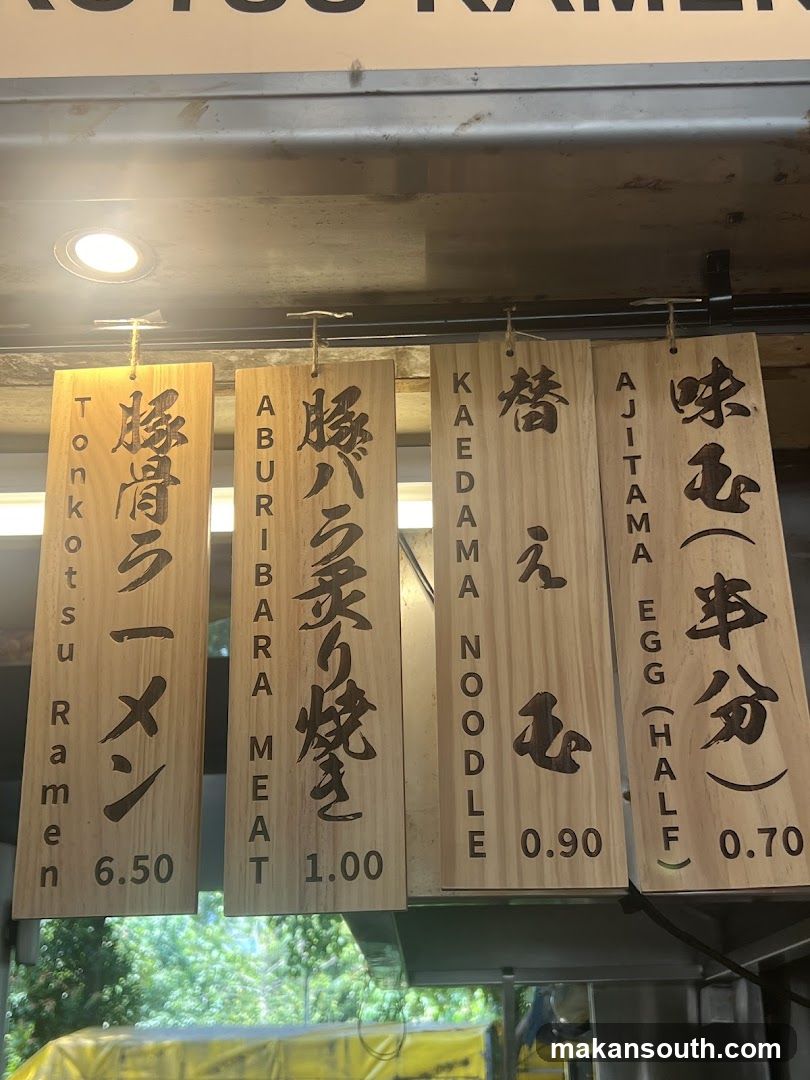 Tonkotsu Ramen
豚骨ラーメン
6.50
ABURIBARA MEAT
豚バラ炙り焼き
1.00
KAEDAMA NOODLE
替え玉
0.90
AJITAMA EGG (HALF)
味玉(半分)
0.70
makansouth.com